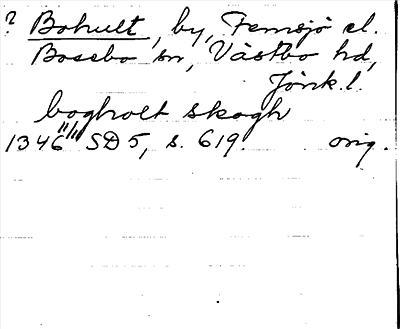 ? Bohult, by, Femsjö el.
Bosebo sn, Västbo hd,
Jönk. l.
bogholt skogh
1346 11/11 SD 5, s. 619. orig.